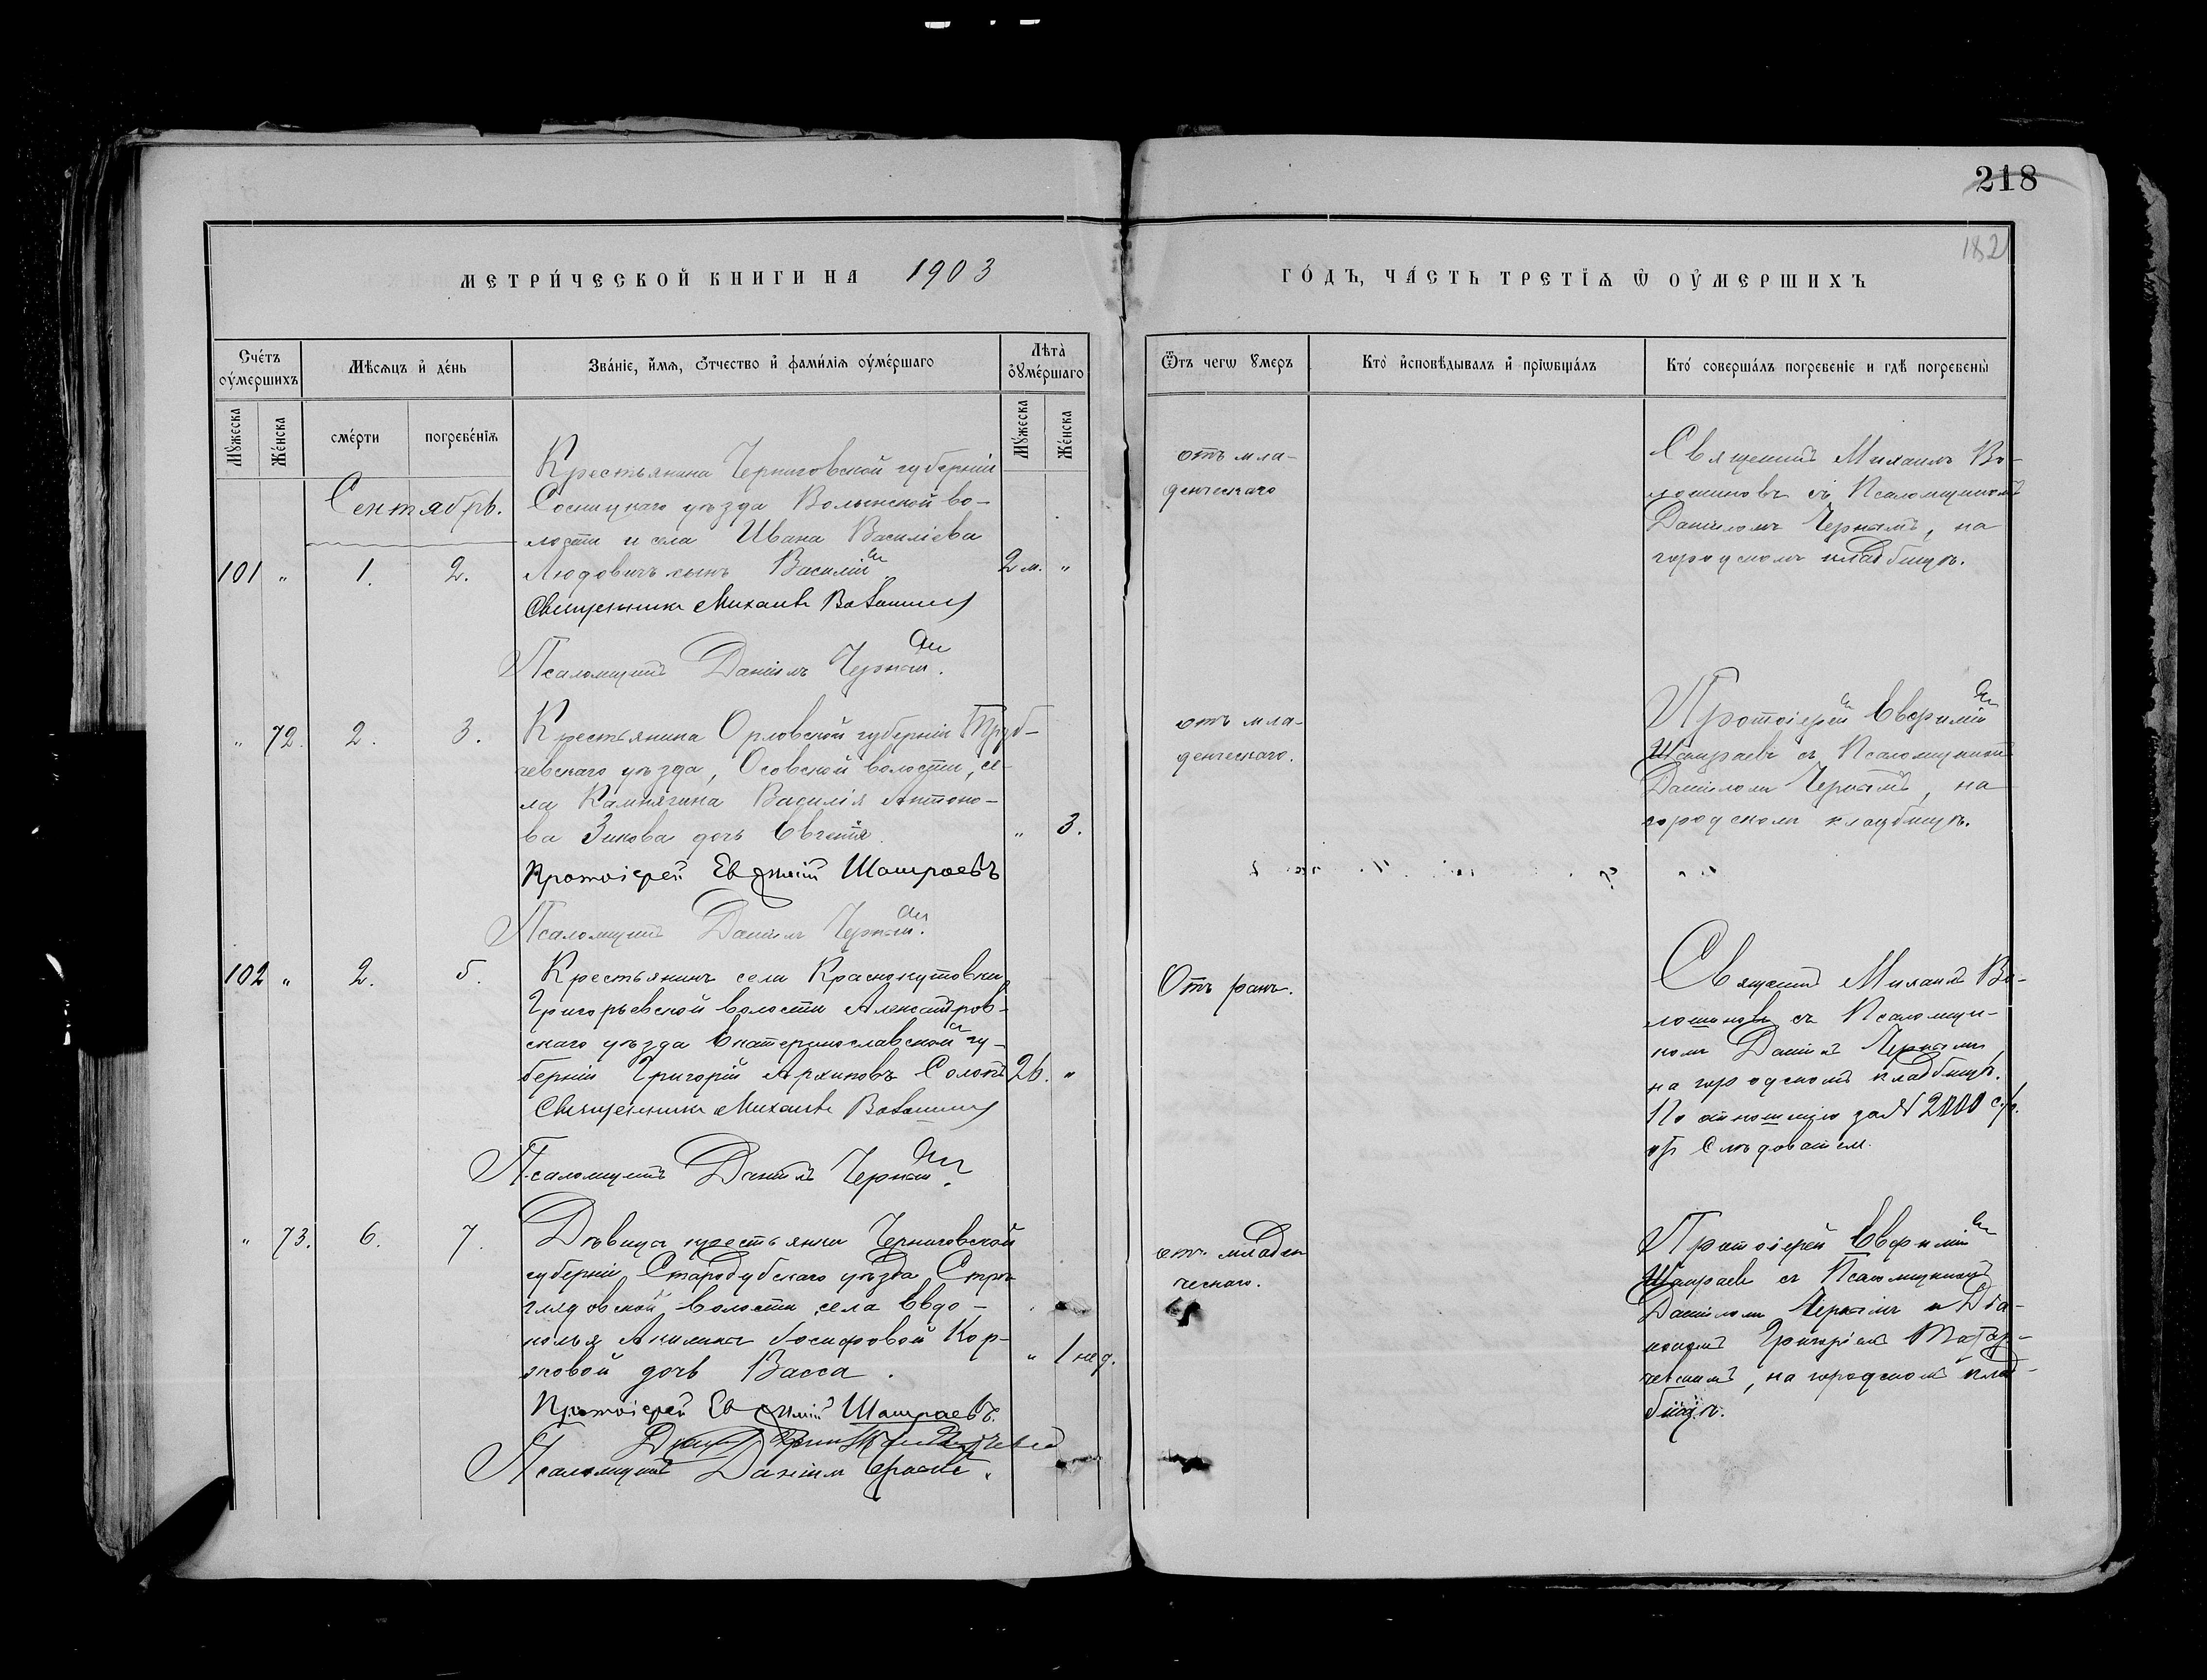 218
182
МЕТРИ́ЧЕСКОЙ КНИГИ НА 1903
ГО́ДЪ, ЧА́СТЬ ТРЕТІѦ Ѿ ОУ҆МЕРШИХЪ
Сче́тъ оу҆мершихъ
Мѣсѧцъ и҆ де́нь
Зва́нїе, и҆́мѧ, ѻ҆́тчество и҆ фами́лїѧ оу҆ме́ршаго
Лѣта̀ оу҆ме́ршаго
Мꙋ́жеска
Же́нска
сме́рти
погребе́нїѧ
Мꙋ́жеска
Же́нска
Ѿ чегѡ ꙋмеръ
Кто̀ и҆сповѣ́дывалъ и҆ прїѡбща́лъ
Кто́ соверша́лъ погребе́нїе и гдѣ̀ погребены̀
Сентябрь.
Крестьянина Черниговской губерніи
Сосницкаго уѣзда Волынской во-
лости и села Ивана Василіева
101 " 1. 2. Людовичъ сынъ Василій 2 м. "
Священникъ Михаилъ Волошиновъ
Псаломщикъ Даніилъ Черный.
отъ мла-
денческаго
Священникъ Михаилъ Во-
лошиновъ съ Псаломщикомъ
Даніиломъ Чернымъ, на
городскомъ кладбищѣ.
" 72. 2. 3. Крестьянина Орловской губерніи Труб-
чевскаго уѣзда, Осовской волости, се-
ла Камнягина Василія Антоно-
ва Зикова дочь Евгенія " 3.
Протоіерей Евфимій Шатраевъ
Псаломщикъ Даніилъ Черный.
отъ мла-
денческаго.
Протоіерей Евфимій
Шатраевъ съ Псаломщикомъ
Даніиломъ Чернымъ, на
городскомъ кладбищѣ.
102 " 2. 5. Крестьянинъ села Краснокутовки
Григорьевской волости Александров-
скаго уѣзда Екатеринославской гу-
берніи Григорій Архиповъ 26. "
Священникъ Михаилъ Волошиновъ
Псаломщикъ Даніилъ Черный.
Отъ ранъ.
Священникъ Михаилъ Во-
лошиновъ съ Псаломщи-
комъ Даніиломъ Чернымъ
на городскомъ кладбищѣ.
По отношенію за №
Слѣдователя.
" 73. 6. 7. Дѣвицы крестьянки Черниговской
губерніи Стародубскаго уѣзда
волости села Евдо-
колья Акилины Іосифовой Кор-
жовой дочь Васса. " 1 нед.
Протоіерей Евфимій Шатраевъ.
Псаломщикъ Даніилъ Черный.
отъ младен
ческаго.
Протоіерей Евфимій
Шатраевъ съ Псаломщикомъ
Даніиломъ Чернымъ и Діа-
кономъ Григоріемъ
, на городскомъ клад-
бищѣ.